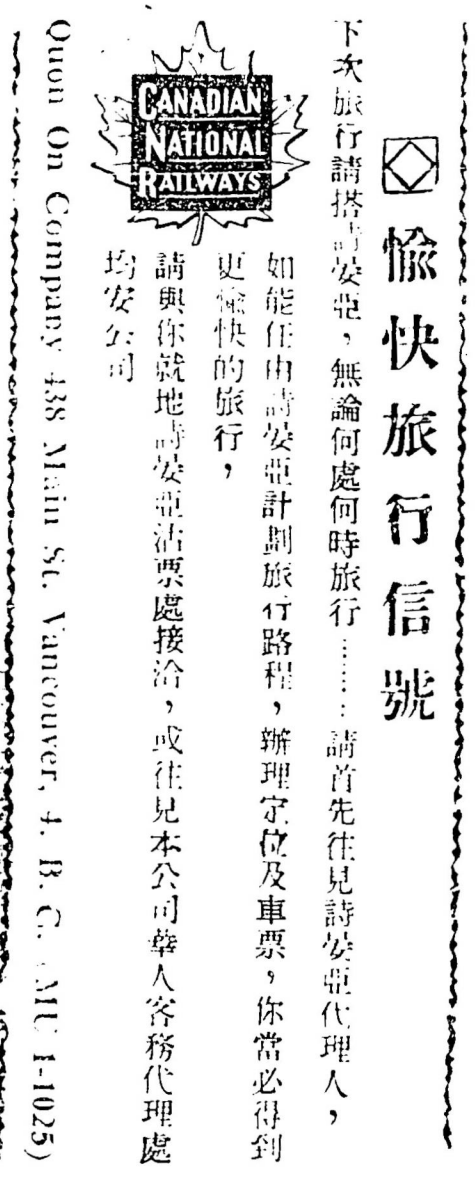 愉快旅行信號
下次旅行請搭詩晏亞,無論何處何時旅行………請首先往見詩晏亞代理人,
如能任由詩晏亞計劃旅行路程,辦理定位及車票,你當必得到
更愉快的旅行,
請與你就地詩晏亞沽票處接洽,或往見本公司華人客務代理處
均安公司
CANADIAN
NATIONAL
RAILWAYS
Quon On Company 438 Main St. Vancouver, 4. B. C. (MU 1-1025)